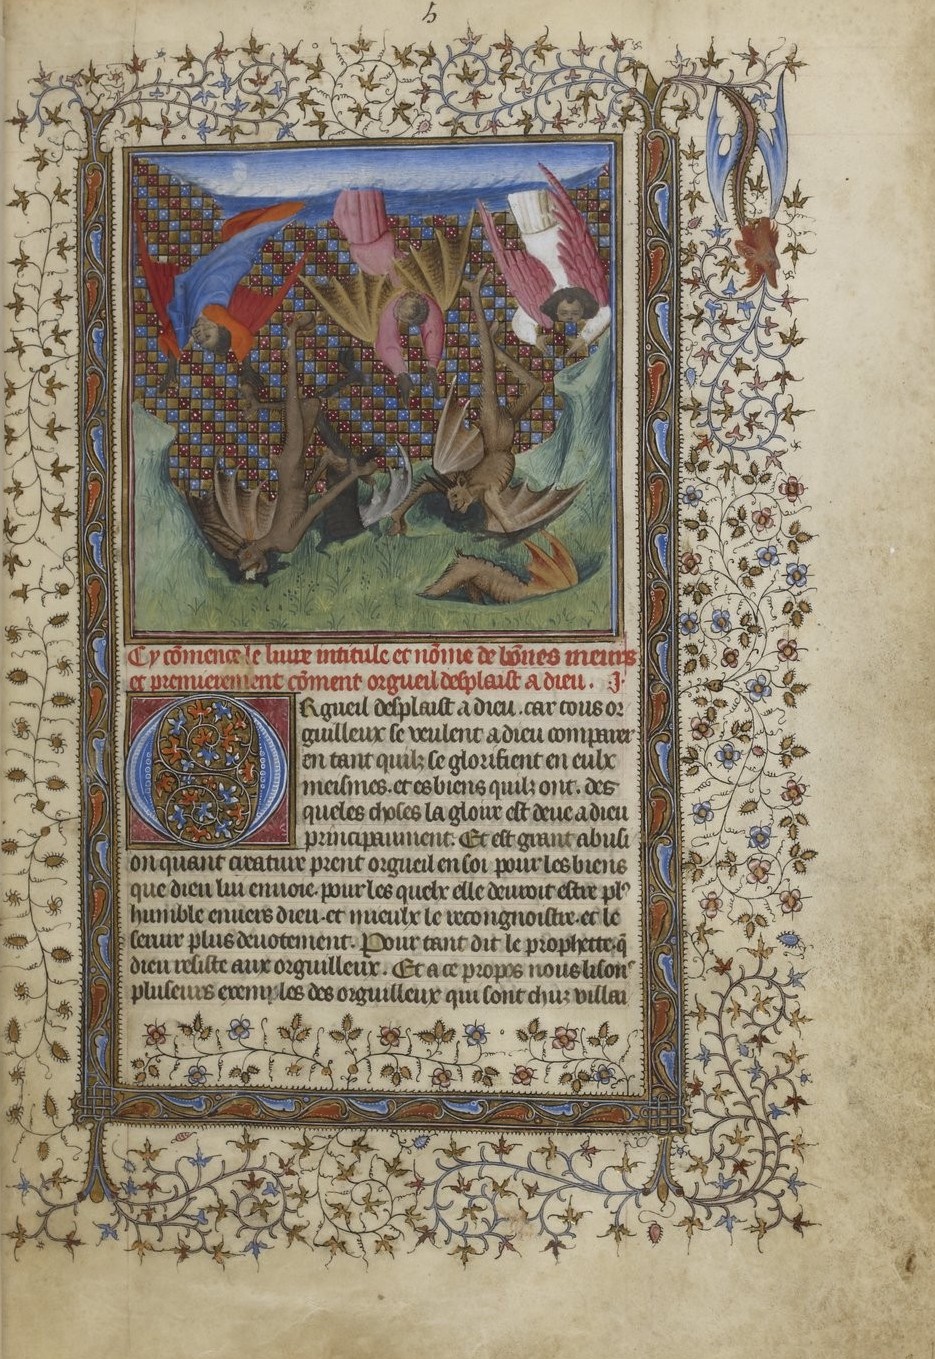 5
Cy cōmence le livre intitule et nōme de bōnes meurs
et premierement cōment orgueil desplaist a dieu . J.
ORgueil desplaist a dieu .car tous or
guilleux se veulent a dieu comparer
en tant quilz se glorifient en eulx
mesmes. et es biens quilz ont. des
queles choses la gloire est deue a dieu
principaument. Et est grant abusi
on quant creature prent orgueil en soi pour les biens
que dieu lui envoie. pour les quelx elle devroit estre plꝰ
humble envers dieu. et mieulx le recongnoistre. et le
servir plus devotement. Pour tant dit le prophette. q̄
dieu resiste aux orguilleux. Et a ce propos nous lisonˢ
plusieurs exemples des orguilleux qui sont cheuz villai